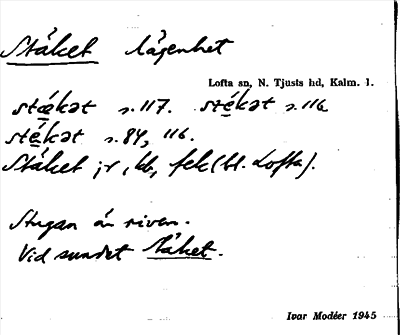 Stäket lägenhet
Lofta sn, N. Tjusts hd, Kalm. l.
stækət s. 117. stékət s. 116
stékət s. 84, 116.
Stäket jr, kb, fek (bl. Lofta).
Stugan är riven.
Vid sundet Stäket.
Ivar Modéer 1945